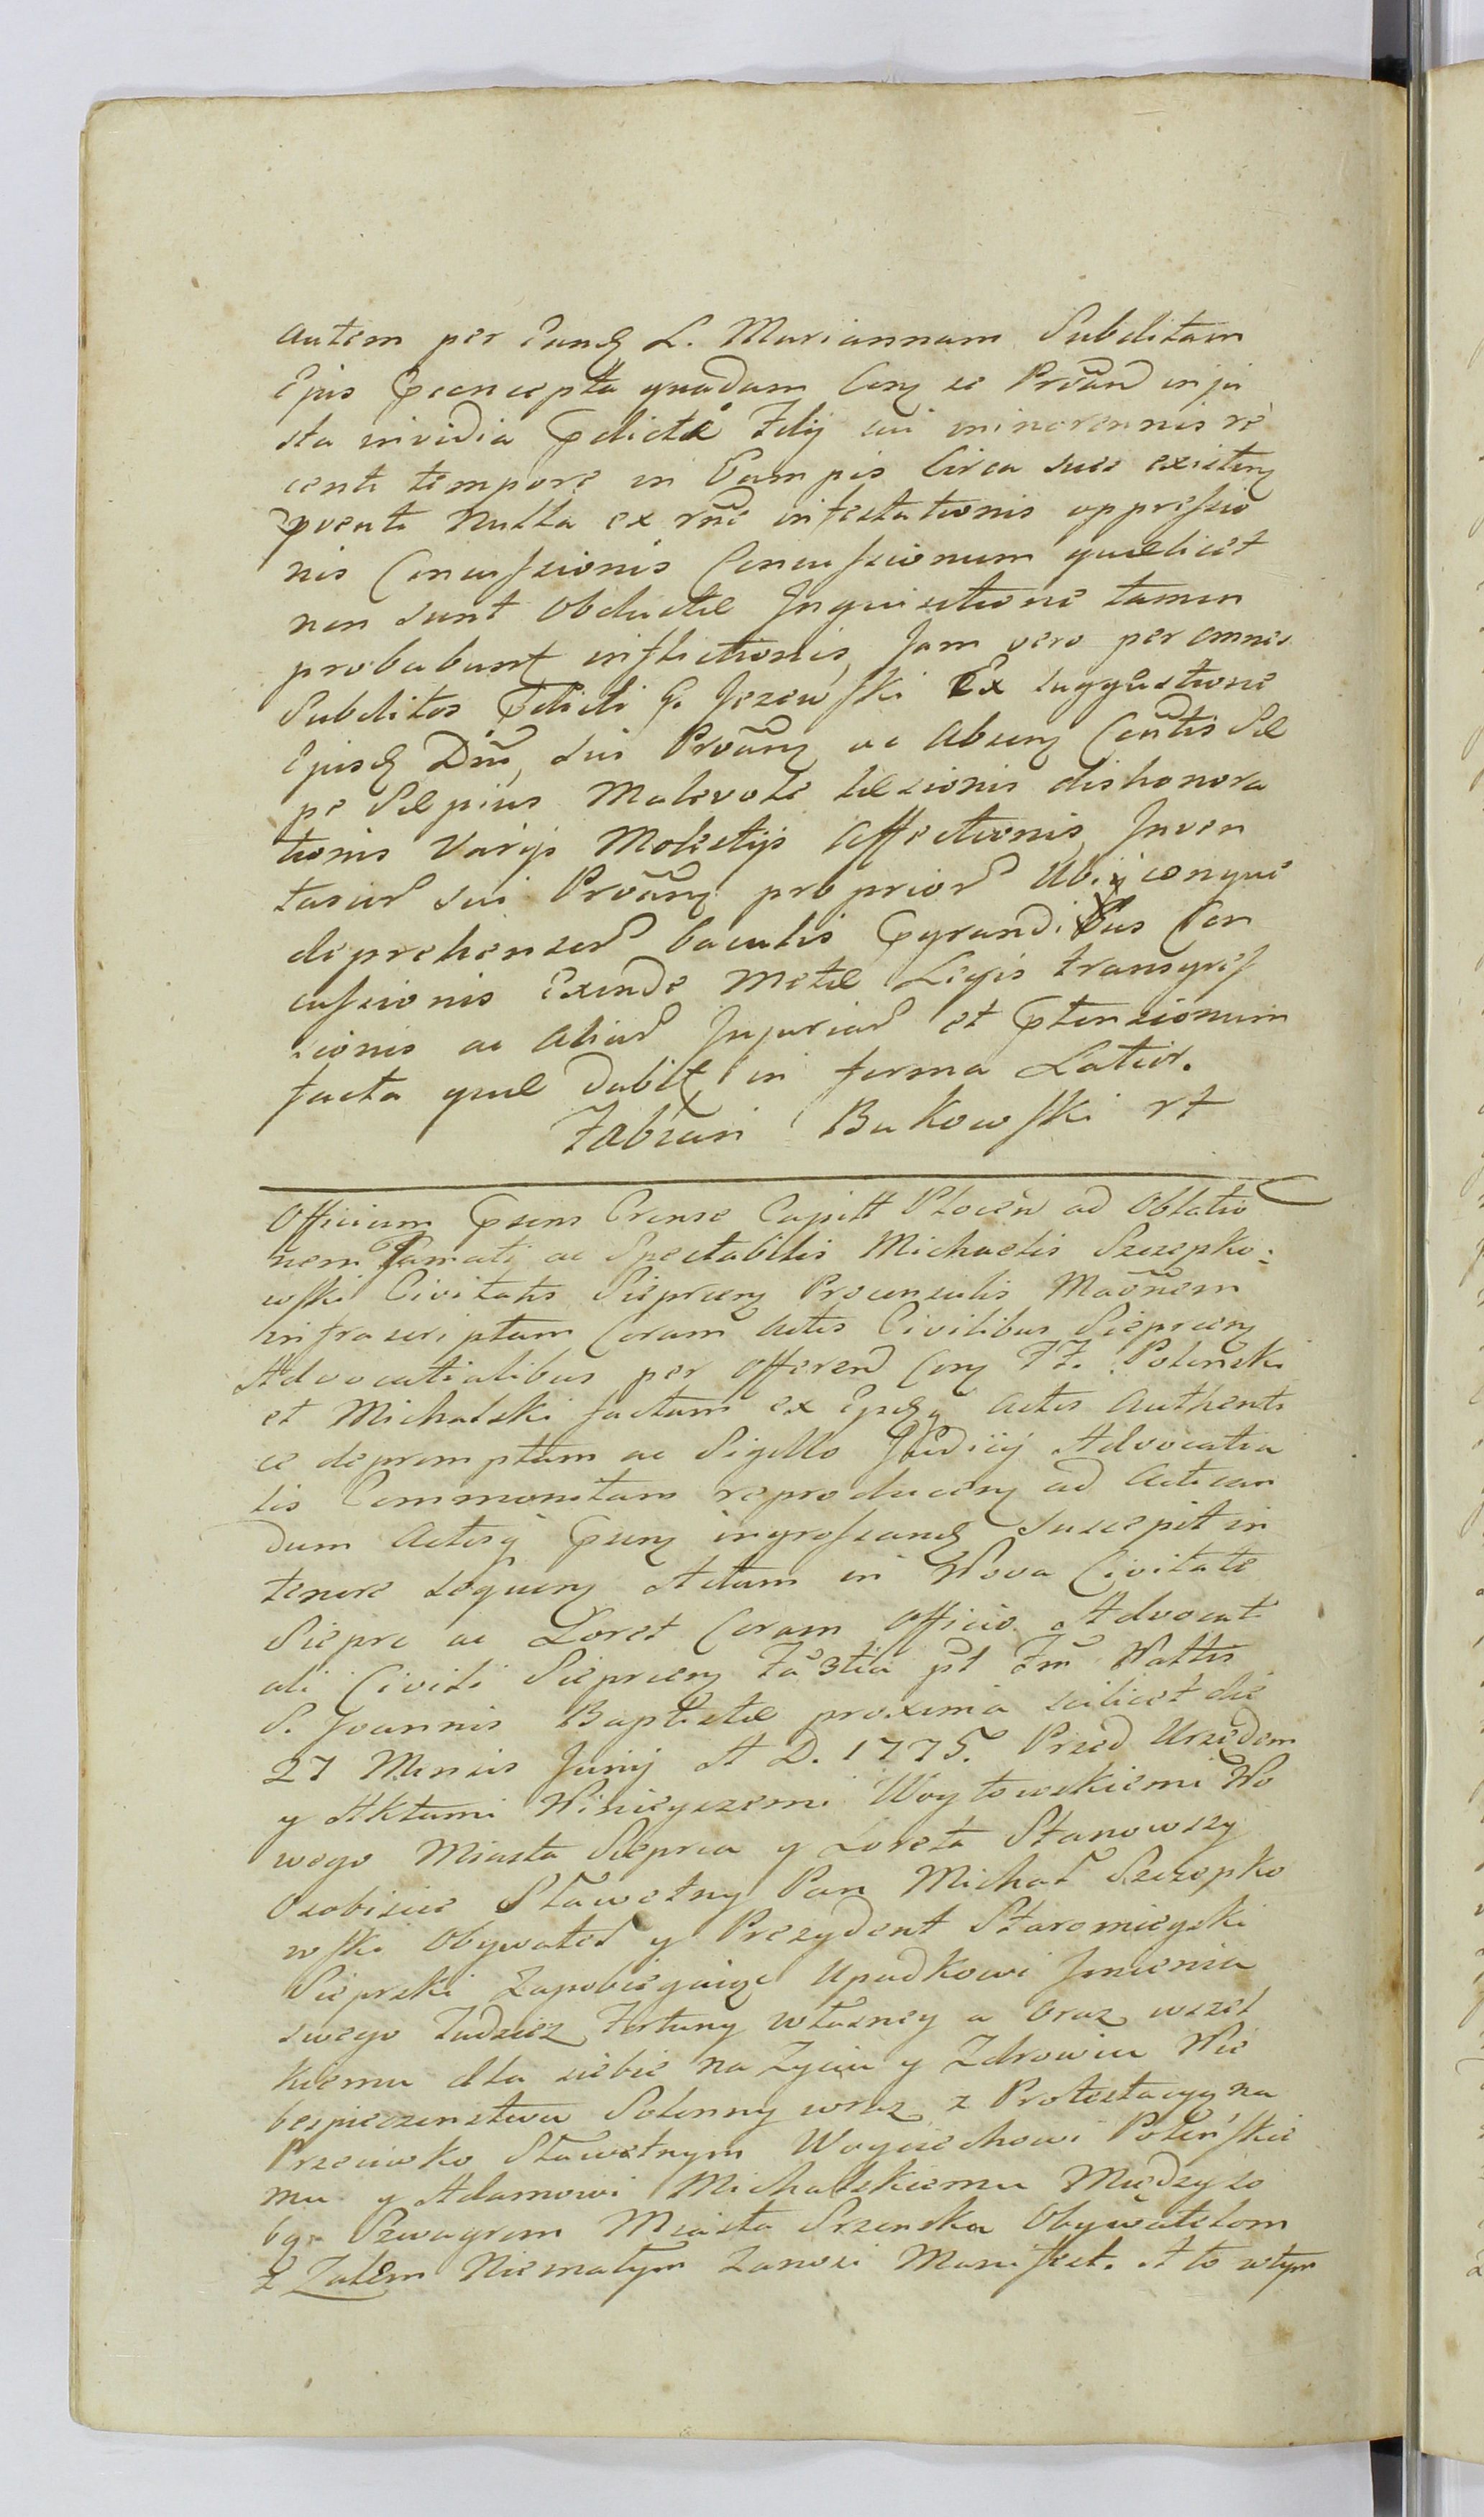 autem per Eand L. Mariannam Subditam
Ejus Pconcepta quadam Conq se Protand inju
sta invidia Pdictæ Filÿ sui minorennis re
centi tempore in Campis Circa sues existenq
nulla ex rne infestationis oppressio
nis Concussionis Concussionum quælicet
non sunt obductæ Inquisitione tamen
probabunt inflictionis, Jam vero per omnes
Subditos Pdicti G. Jezewski Ex suggestione
Ejusd Dni, sui Protanq ac absenq Contis Sæ
pe Sæpius Malevole læsionis dishonora
tionis Varijs Molestijs affectionis,
sui Protanq proprior Ubi conque
deprehensor baculis Pgrandibus Con
cussionis Exinde Metæ Legis transgres
sionis ac aliar Injuriar et Ptensionum
facta quæ dabit in forma Latior.
Fabian Bukowski rt
Officium Psens Crense Capitt Plocen ad Oblatio
nem Famati ac Spectabilis Michaelis Szczepko-
wski Civitatis Sieprcenq Proconsulis Maonem
infrascriptam Coram Actis Civilibus Sieprcenq
Advocatialibus per offerend Conq FF. Polenski
et Michalski factam ex actis Authenti
ce depromptam ac Sigillo Judicij Advocatia
lis Communitam reproducenq ad Actican
dum Actisq Psenq ingrossand Suscepit in
tenore sequenq Actum in Nova Civitate
Sieprc ac Loret Coram officio Advocati
ali Civili Sieprcenq Fa 3tia pt Fm Nattis
S. Joannis Baptistæ proxima scilicet die
27 Mensis Junij A D. 1775. Przed Urzędem
y Aktami Ninieyszemi Woytowskiemi No
wego Miasta Sieprca y Loreta Stanowszy
Osobiscie Sławetny Pan Michał Szczepko
wski Obywatel y Prezydent Staromieyski
Sieprski Zapobiegaiąc Upadkowi Jmienia
swego Tudziez Fortuny własney a oraz wszel
kiemu dla siebie na Zyciu y Zdrowiu Nie
bespieczenstwu Solenny wraz z Protestacyą na
Przeciwko Sławetnym Woyciechowi Poleńskie
mu y Adamowi Michalskiemu Między so
bą Szwagrom Miasta Srzenska Obywatelom
z Zalem Niemałym Zanosi Manifest. A to wtym